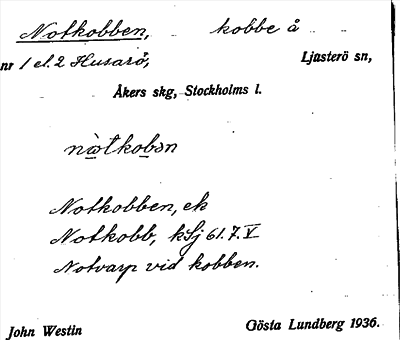 Notkobben, kobbe å
nr 1 el. 2 Husarö, Ljusterö sn,
Åkers skg, Stockholms l.
nὼtkobən
Notkobben, ek
Notkobb, kSj 61.7.V
Notvarp vid kobben.
John Westin Gösta Lundberg 1936.